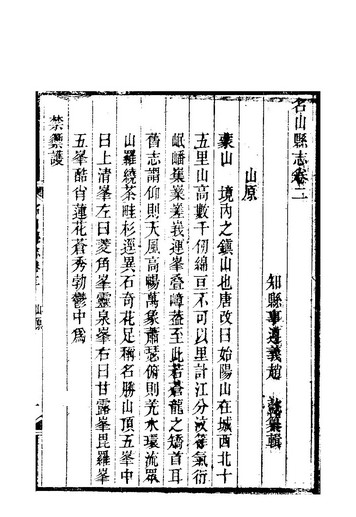 名山縣志卷二
知縣事遵義趙 懿纂輯
山原
蒙山 境內之鎮山也唐改曰始陽山在城西北十
五里山高數千仞綿亘不可以里計江分液籌氣衍
岷嶓嶪業峩運峯疊嶂葢至此若蒼龍之矯首耳
舊志謂仰則天風高暢萬象蕭瑟俯則羌水環流眾
山羅繞茶畦杉逕異石奇花足稱名勝山頂五峯中
曰上清峯左曰菱角峯靈泉峯右曰甘露峯毘羅峯
五峯酷肖蓮花蒼秀勃鬱中為
禁籞護
山原